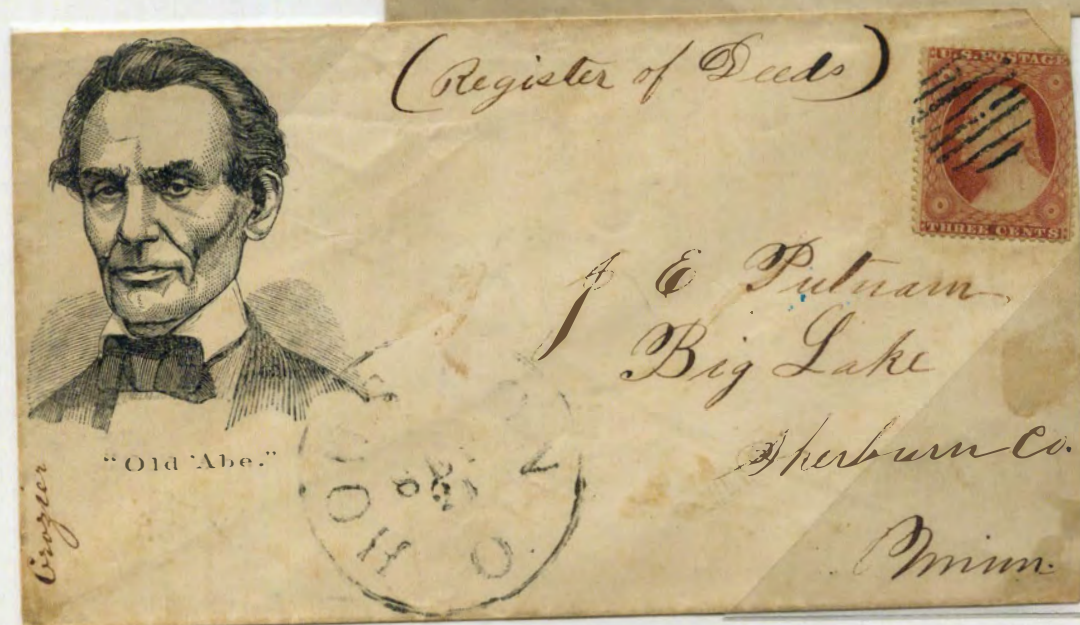 (Register of Deeds)
U.S. POSTAGE
THREE CENTS
J E Putnam
Big Lake
Sherburn Co.
Minn.
"Old Abe."
Crozier